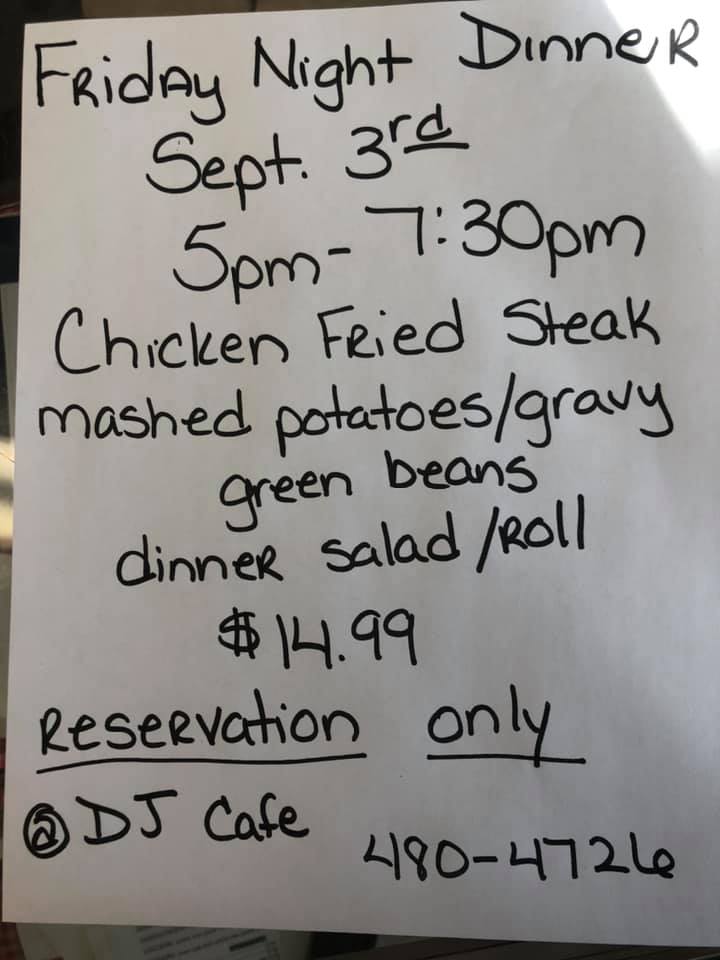 Friday Night Dinner
Sept. 3rd
5pm - 7:30pm
Chicken Fried Steak
mashed potatoes/gravy
green beans
dinner salad/Roll
$14.99
Reservation only
@ DJ Cafe
480-4726